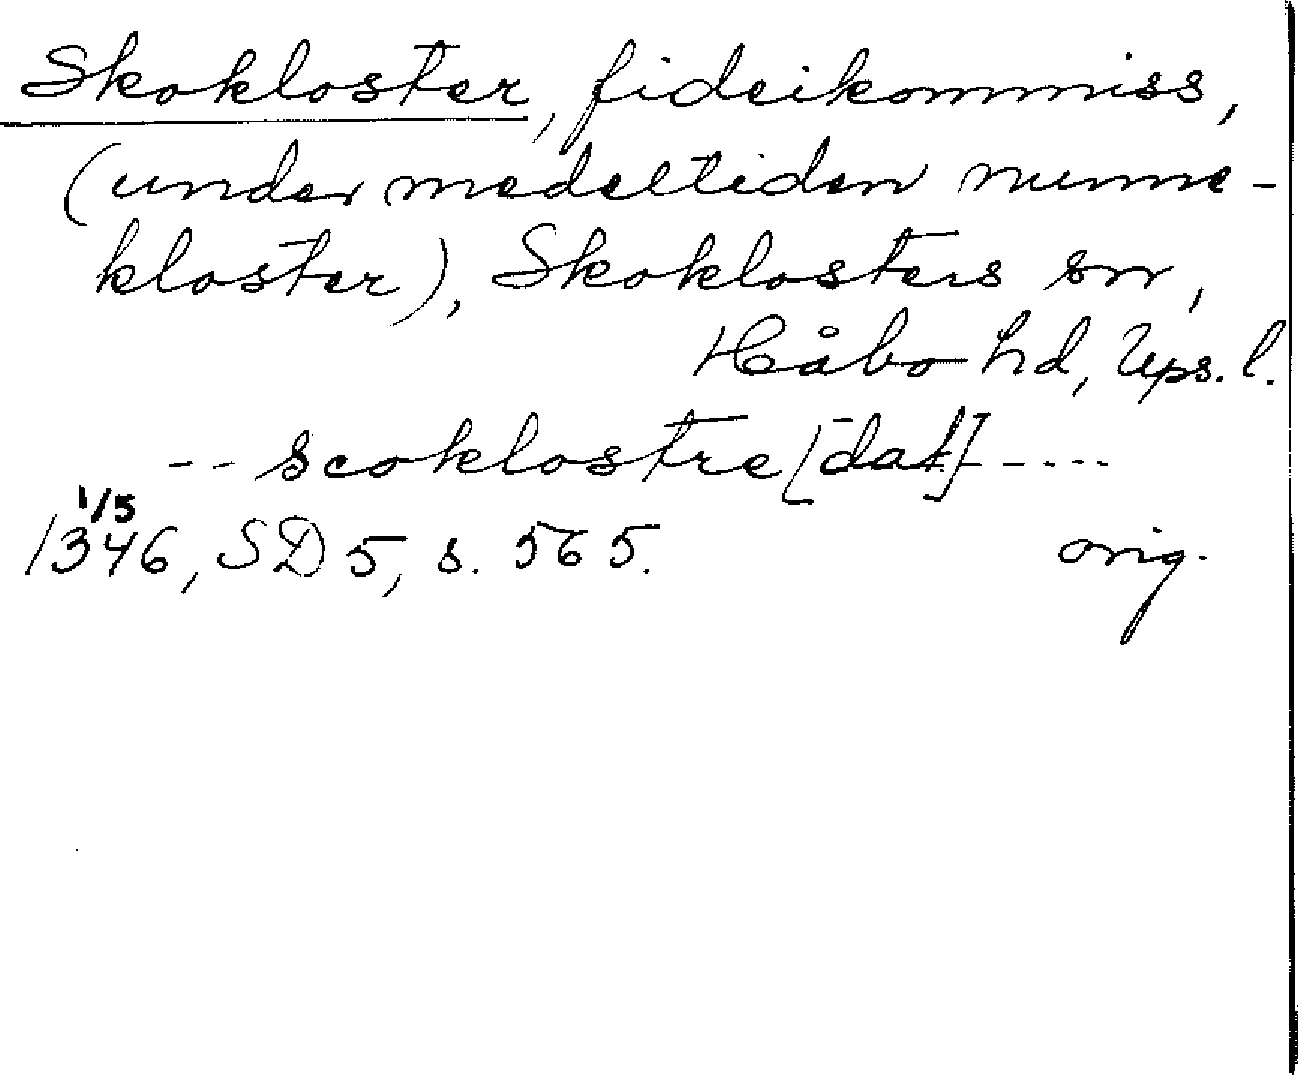 Skokloster, fideikommiss,
(under medeltiden nunne-
kloster), Skoklosters sn,
Håbo hd, Ups. l.
-- scoklostre [dat] -----
1/5
1346, SD 5, s. 565. orig.